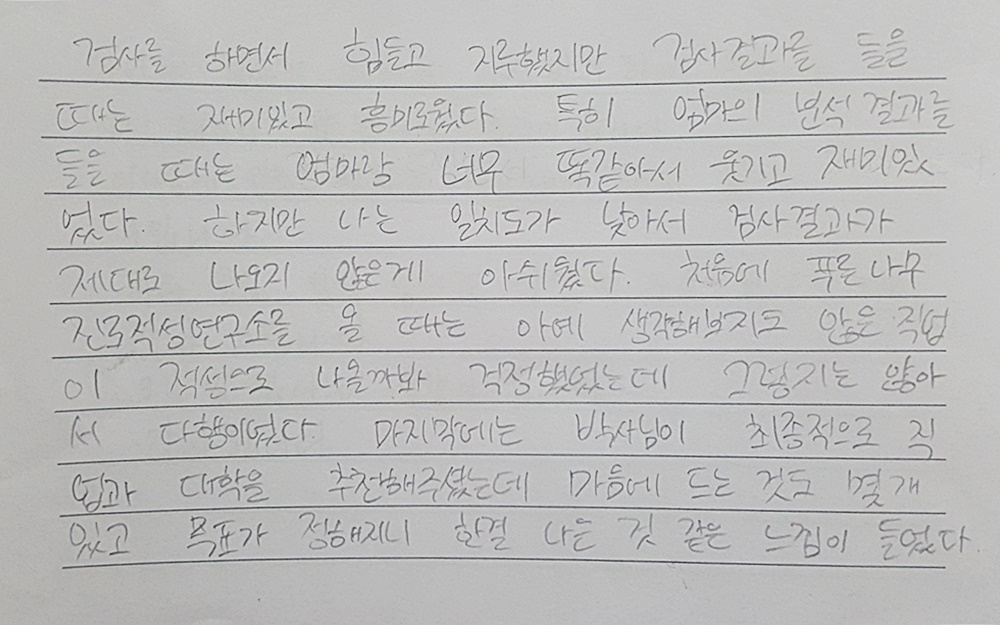 검사를 하면서 힘들고 지루했지만 검사결과를 들을
때는 재미있고 흥미로웠다. 특히 엄마의 분석결과를
들을 때는 엄마랑 너무 똑같아서 웃기고 재미있
었다. 하지만 나는 일치도가 낮아서 검사결과가
제대로 나오지 않은게 아쉬웠다. 처음에 푸른나무
진로적성연구소를 올 때는 아예 생각해보지도 않은 직업
이 적성으로 나올까봐 걱정했었는데 그렇지는 않아
서 다행이었다. 마지막에는 박사님이 최종적으로 직
업과 대학을 추천해주셨는데 마음에 드는 것도 몇개
있고 목표가 정해지니 한결 나은 것 같은 느낌이 들었다.